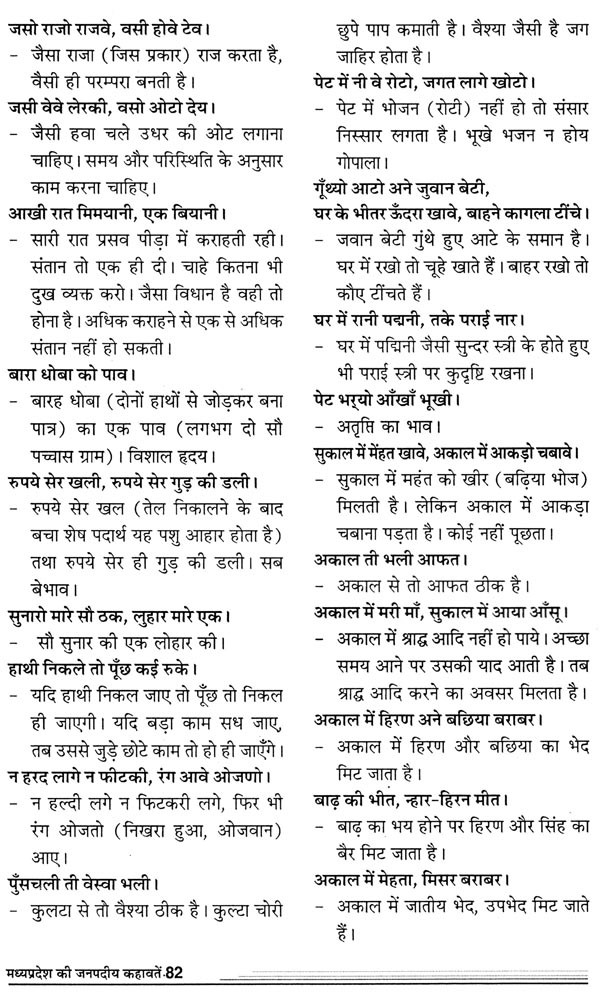 जसो राजो राजवे, वसी होवे टेव।
– जैसा राजा (जिस प्रकार) राज करता है,
वैसी ही परम्परा बनती है।
जसी वेवे लेरकी, वसो ओटो देय।
– जैसी हवा चले उधर की ओट लगाना
चाहिए। समय और परिस्थिति के अनुसार
काम करना चाहिए।
आखी रात मिमयानी, एक बियानी।
– सारी रात प्रसव पीड़ा में कराहती रही।
संतान तो एक ही दी। चाहे कितना भी
दुख व्यक्त करो। जैसा विधान है वही तो
होना है। अधिक कराहने से एक से अधिक
संतान नहीं हो सकती।
बारा धोबा को पाव।
– बारह धोबा (दोनों हाथों से जोड़कर बना
पात्र) का एक पाव (लगभग दो सौ
पच्चास ग्राम)। विशाल हृदय।
रुपये सेर खली, रुपये सेर गुड़ की डली।
– रुपये सेर खल (तेल निकालने के बाद
बचा शेष पदार्थ यह पशु आहार होता है)
तथा रुपये सेर ही गुड़ की डली। सब
बेभाव।
सुनारो मारे सौ ठक, लुहार मारे एक।
– सौ सुनार की एक लोहार की।
हाथी निकले तो पूँछ कई रुके।
– यदि हाथी निकल जाए तो पूँछ तो निकल
ही जाएगी। यदि बड़ा काम सध जाए,
तब उससे जुड़े छोटे काम तो हो ही जाएँगे।
न हरद लागे न फीटकी, रंग आवे ओजणो।
– न हल्दी लगे न फिटकरी लगे, फिर भी
रंग ओजतो (निखरा हुआ, ओजवान)
आए।
पुँसचली ती वेस्वा भली।
– कुलटा से तो वैश्या ठीक है। कुल्टा चोरी
छुपे पाप कमाती है। वैश्या जैसी है जग
जाहिर होता है।
पेट में नी वे रोटो, जगत लागे खोटो।
– पेट में भोजन (रोटी) नहीं हो तो संसार
निस्सार लगता है। भूखे भजन न होय
गोपाला।
गूँथ्यो आटो अने जुवान बेटी,
घर के भीतर ऊँदरा खावे, बाहने कागला टींचे।
– जवान बेटी गुंथे हुए आटे के समान है।
घर में रखो तो चूहे खाते हैं। बाहर रखो तो
कौए टींचते हैं।
घर में रानी पद्मनी, तके पराई नार।
– घर में पद्मिनी जैसी सुन्दर स्त्री के होते हुए
भी पराई स्त्री पर कुदृष्टि रखना।
पेट भर्‌यो आँखाँ भूखी।
– अतृप्ति का भाव।
सुकाल में मेंहत खावे, अकाल में आकड़ो चबावे।
– सुकाल में महंत को खीर (बढ़िया भोज)
मिलती है। लेकिन अकाल में आकड़ा
चबाना पड़ता है। कोई नहीं पूछता।
अकाल ती भली आफत।
– अकाल से तो आफत ठीक है।
अकाल में मरी माँ, सुकाल में आया आँसू।
– अकाल में श्राद्ध आदि नहीं हो पाये। अच्छा
समय आने पर उसकी याद आती है। तब
श्राद्ध आदि करने का अवसर मिलता है।
अकाल में हिरण अने बछिया बराबर।
– अकाल में हिरण और बछिया का भेद
मिट जाता है।
बाढ़ की भीत, न्हार-हिरन मीत।
– बाढ़ का भय होने पर हिरण और सिंह का
बैर मिट जाता है।
अकाल में मेहता, मिसर बराबर।
– अकाल में जातीय भेद, उपभेद मिट जाते
हैं।
मध्यप्रदेश की जनपदीय कहावतें-82